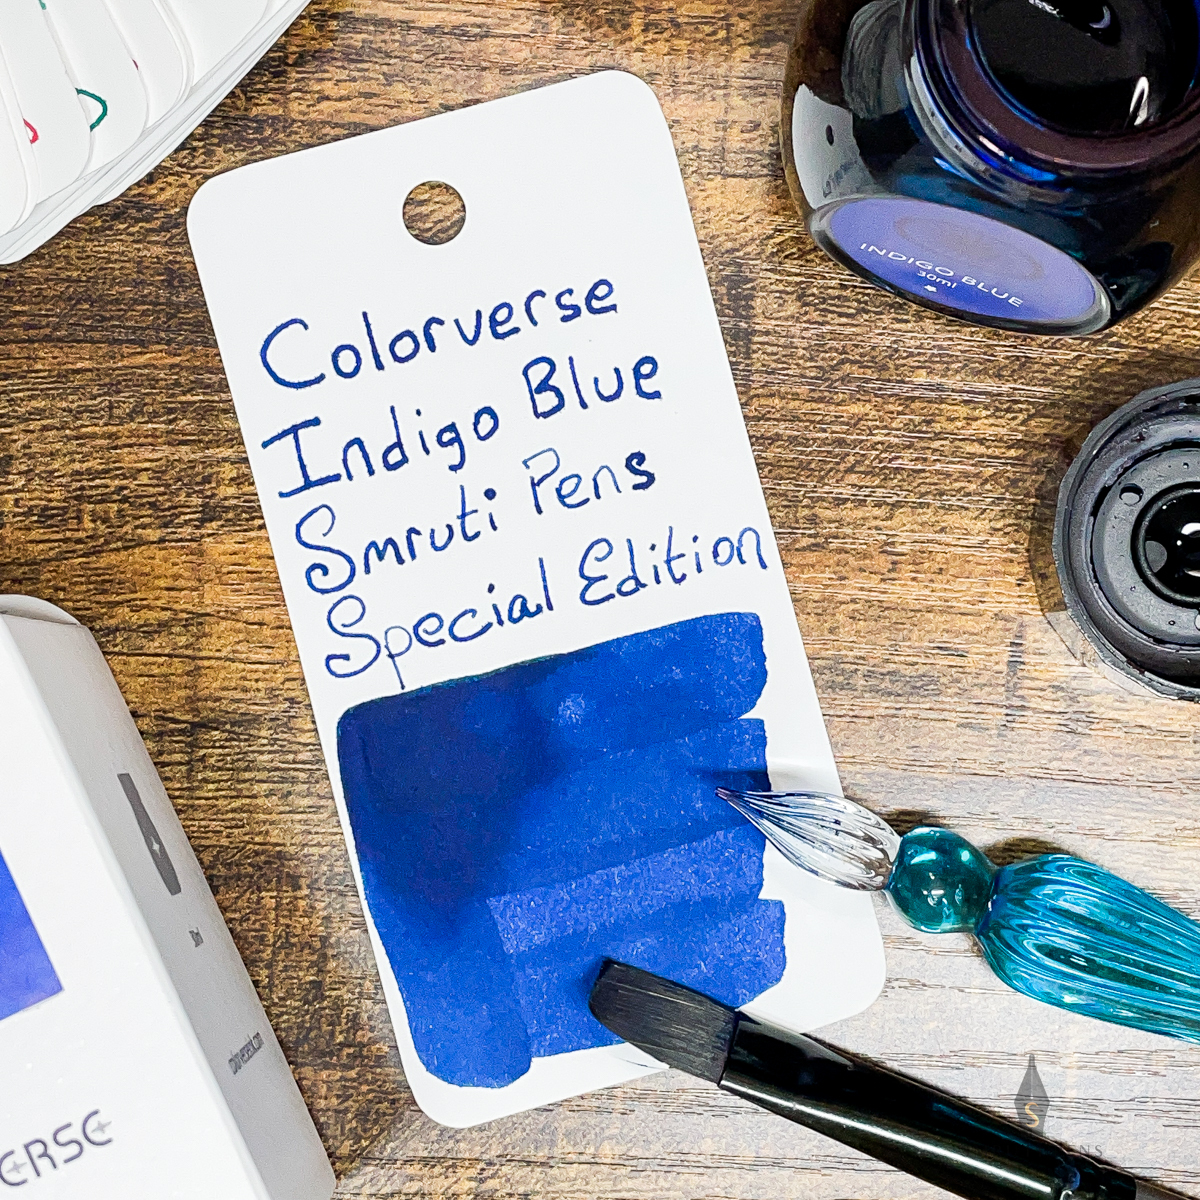 Colorverse
Indigo Blue
Smruti Pens
Special Edition
INDIGO BLUE
30ml
colorverseink.com
ERSE
S